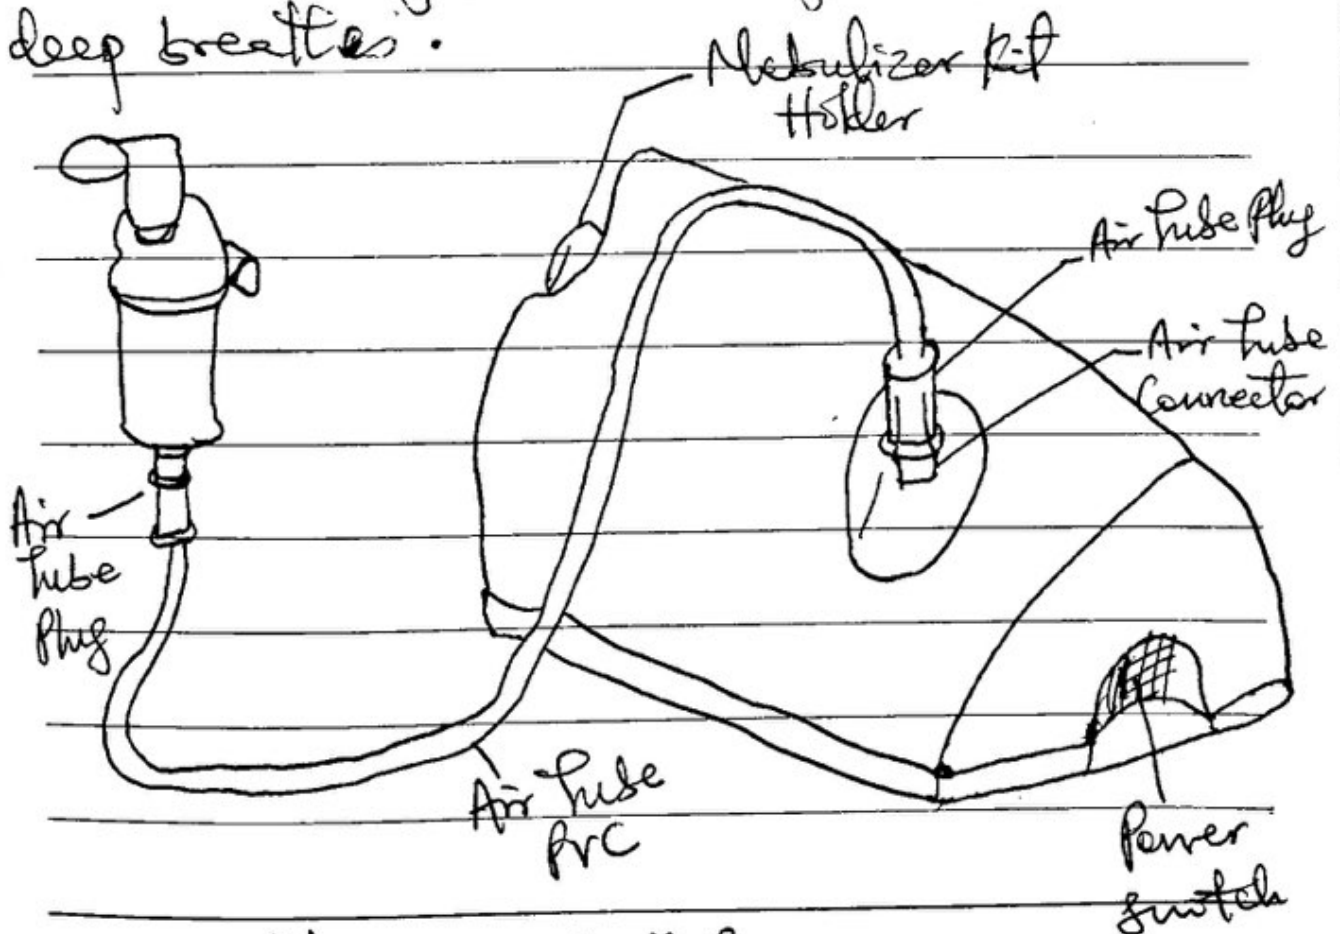 deep breaths.
Nebulizer Kit
Holder
Air Tube Plug
Air Tube
Connector
Air
Tube
Plug
Air Tube
PVC
Power
switch